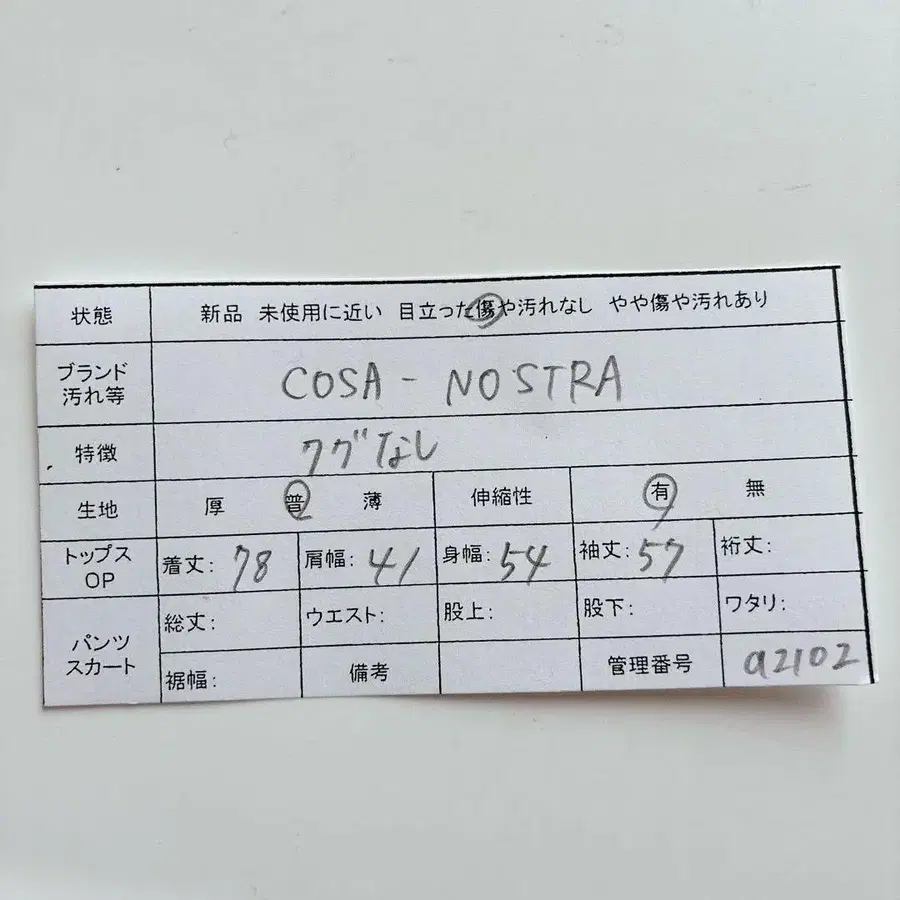 状態 新品 未使用に近い 目立った傷や汚れなし やや傷や汚れあり
ブランド
汚れ等
COSA - NOSTRA
特徴 タグなし
生地 厚 普 薄 伸縮性 有 無
トップス
OP
着丈: 78 肩幅: 41 身幅: 54 袖丈: 57 裄丈:
パンツ
スカート
総丈: ウエスト: 股上: 股下: ワタリ:
裾幅: 備考 管理番号 a2102